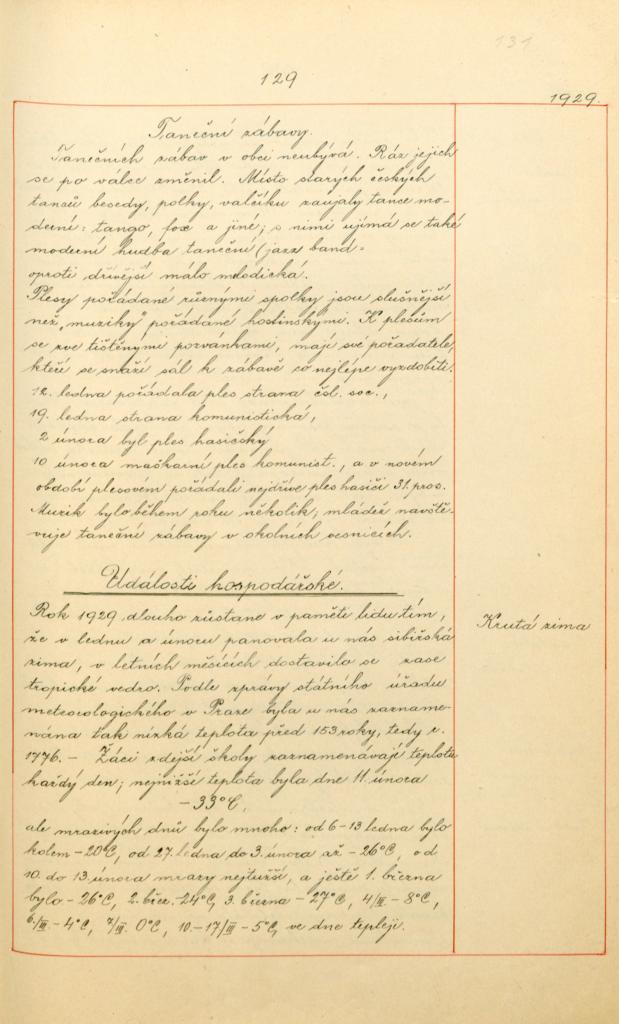 131
129
1929.
Taneční zábavy.
Tanečních zábav v obci neubývá. Ráz jejich
se po válce změnil. Místo starých českých
tanců besedy, polky, valčíku zaujaly tance mo-
derní: tango, fox a jiné; s nimi ujímá se také
moderní hudba taneční (jazz band -
oproti dřívější málo melodická.
Plesy pořádané různými spolky jsou slušnější
než „muziky" pořádané hostinskými. K plesům
se zve tištěnými pozvánkami, mají své pořadatele,
kteří se snaží sál k zábavě co nejlépe vyzdobiti.
12. ledna pořádala ples strana čsl. soc.,
19. ledna strana komunistická,
2 února byl ples hasičský
10 února maškarní ples komunist., a v novém
období plesovém pořádali nejdříve ples hasiči 31. pros.
Muzik bylo během roku několik; mládež navště-
vuje taneční zábavy v okolních vesnicích.
Události hospodářské.
Rok 1929 dlouho zůstane v paměti lidu tím,
že v lednu a únoru panovala u nás sibiřská
zima, v letních měsících dostavilo se zase
tropické vedro. Podle zprávy státního úřadu
meteorologického v Praze byla u nás zazname-
nána tak nízká teplota před 153 roky, tedy r.
1776. - Žáci zdejší školy zaznamenávají teplotu
každý den; nejnižší teplota byla dne 11. února
- 33°C,
ale mrazivých dnů bylo mnoho: od 6-13 ledna bylo
kolem -20°C, od 27. ledna do 3. února až -26°C, od
10. do 13. února mrazy nejtužší, a ještě 1. března
bylo -26°C, 2. břez. -24°C, 3. března -27°C, 4/III -8°C,
6./III. -4°C, 7/III. 0°C, 10.-17/III -5°C, ve dne tepleji.
Krutá zima